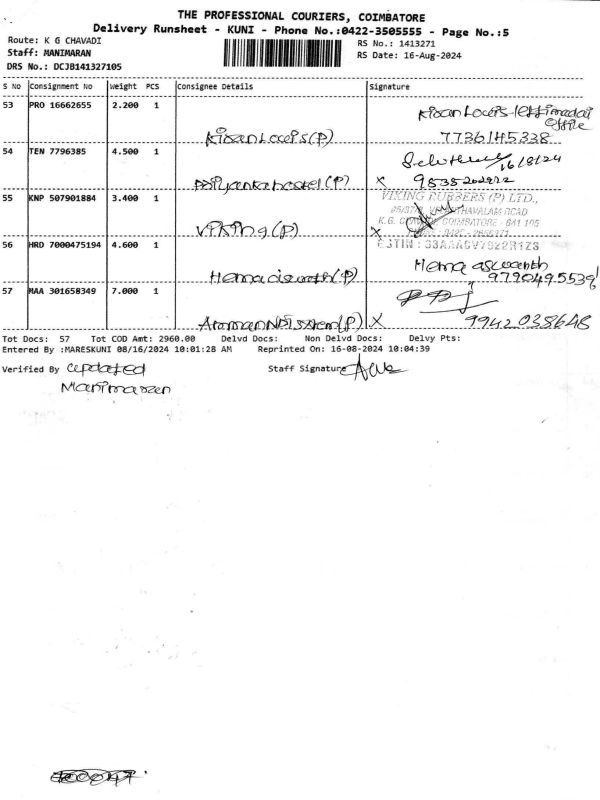 THE PROFESSIONAL COURIERS, COIMBATORE
Delivery Runsheet - KUNI - Phone No.:0422-3505555 - Page No.:5
Route: K G CHAVADI
RS No.: 1413271
Staff: MANIMARAN
RS Date: 16-Aug-2024
DRS No.: DCJB141327105
S No Consignment No Weight PCS Consignee Details Signature
53 PRO 16662655 2.200 1
office
7736145338
54 TEN 7796385 4.500 1
16/8/24
hostel(P) X
55 KNP 507901884 3.400 1 VIKING RUBBERS (P) LTD.,
(P) X
56 HRD 7000475194 4.600 1
Hema aswanth
Hema (P) 9790495539
57 MAA 301658349 7.000 1
(P) X 9942038648
Tot Docs: 57 Tot COD Amt: 2960.00 Delvd Docs: Non Delvd Docs: Delvy Pts:
Entered By :MARESKUNI 08/16/2024 10:01:28 AM Reprinted On: 16-08-2024 10:04:39
Verified By updated Staff Signature
Manimaran